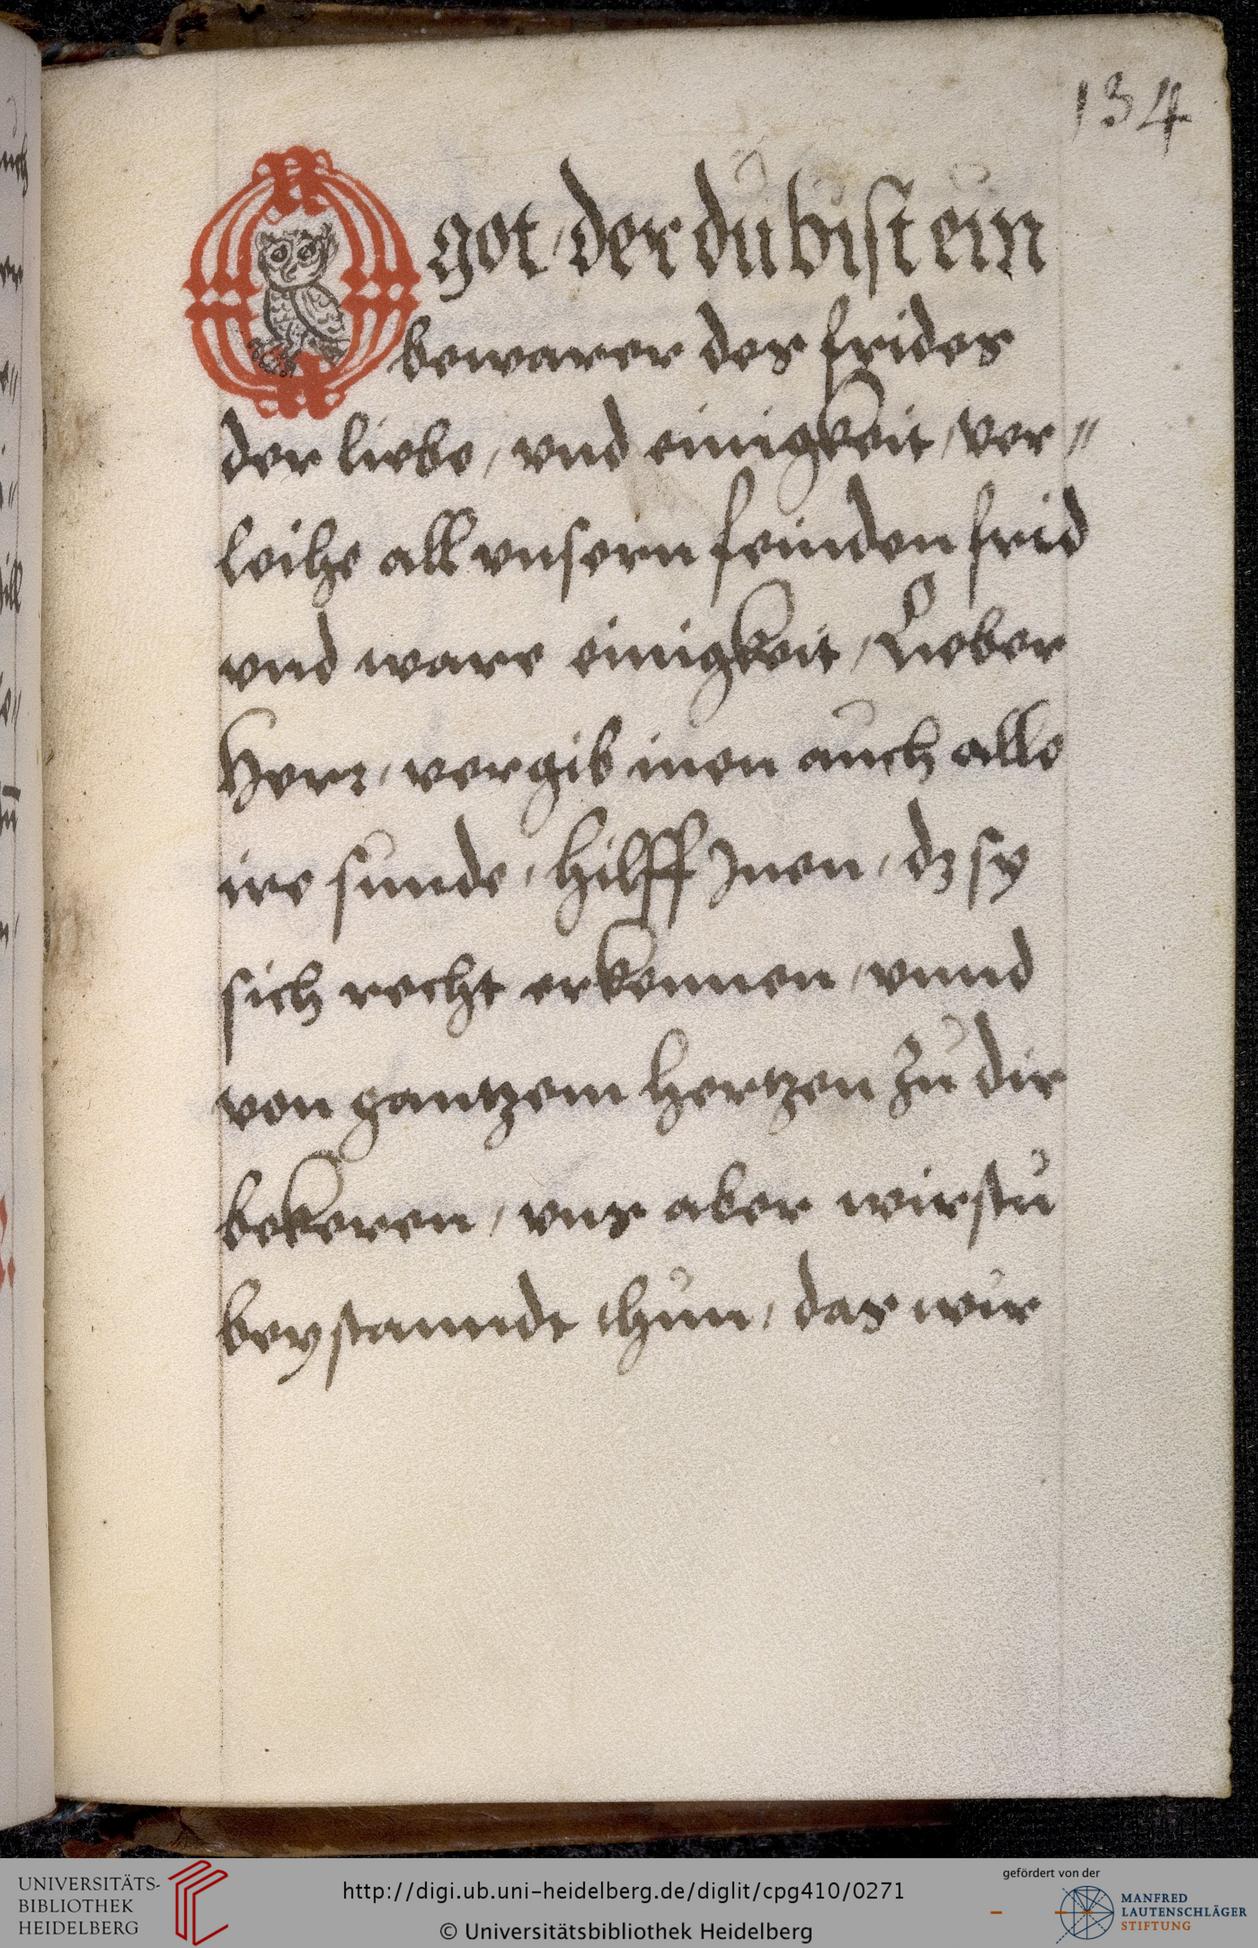 134
O got / der du bist ein
bewarer des frides
der liebe / vnd einigkeit / ver〃
leihe all vnsern feinden frid
vnd ware einigkeit / Lieber
Herr / vergib inen auch alle
ire sunde / hilff Inen / dz sy
sich recht erkennen / vnnd
von gantzem hertzen zu dir
bekeren / vns aber wirstu
beystanndt thun / das wir
UNIVERSITÄTS-
BIBLIOTHEK
HEIDELBERG
http://digi.ub.uni-heidelberg.de/diglit/cpg410/0271
© Universitätsbibliothek Heidelberg
gefördert von der
MANFRED
LAUTENSCHLÄGER
STIFTUNG